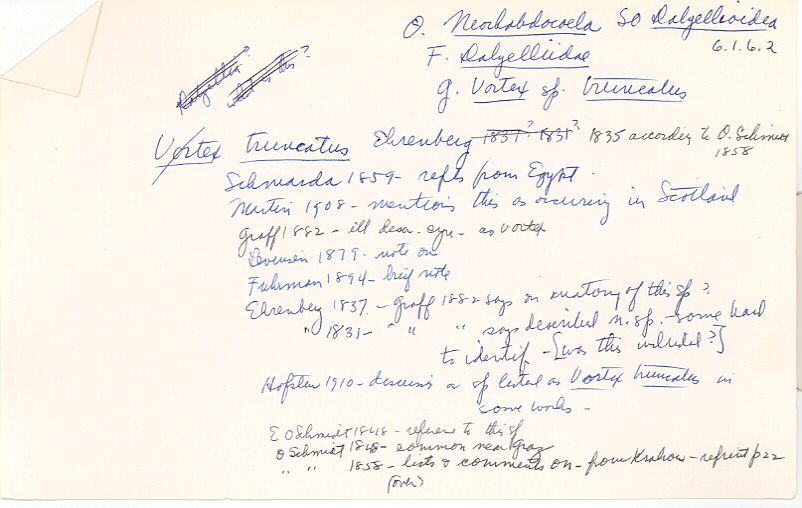 O. Neorhabdocoela SO Dalyellioidea
6.1.6.2
F. Dalyelliidae
G. Vortex sp. truncatus
Dalyellia ?
what is this?
Vortex truncatus Ehrenberg 1837? 1831? 1835 according to O. Schmidt
1858
Schmarda 1859 - repts from Egypt.
Martin 1908 - mentions this as occuring in Scotland
Graff 1882 - ill desc. syn - as Vortex
Levensen 1879 - note on
Fuhrman 1894 - brief note
Ehrenberg 1837 - Graff 1882 says on anatomy of this sp?
" 1831 - " " says described n. sp. - some hard
to identif - [was this included?]
Hofsten 1910 - discusses a sp listed as Vortex truncatus in
some works -
E O Schmidt 1848 - reference to this sp
O Schmidt 1848 - common near Graz
" " 1858 - lists & comments on - from Krakow - reprint p 22
(over)